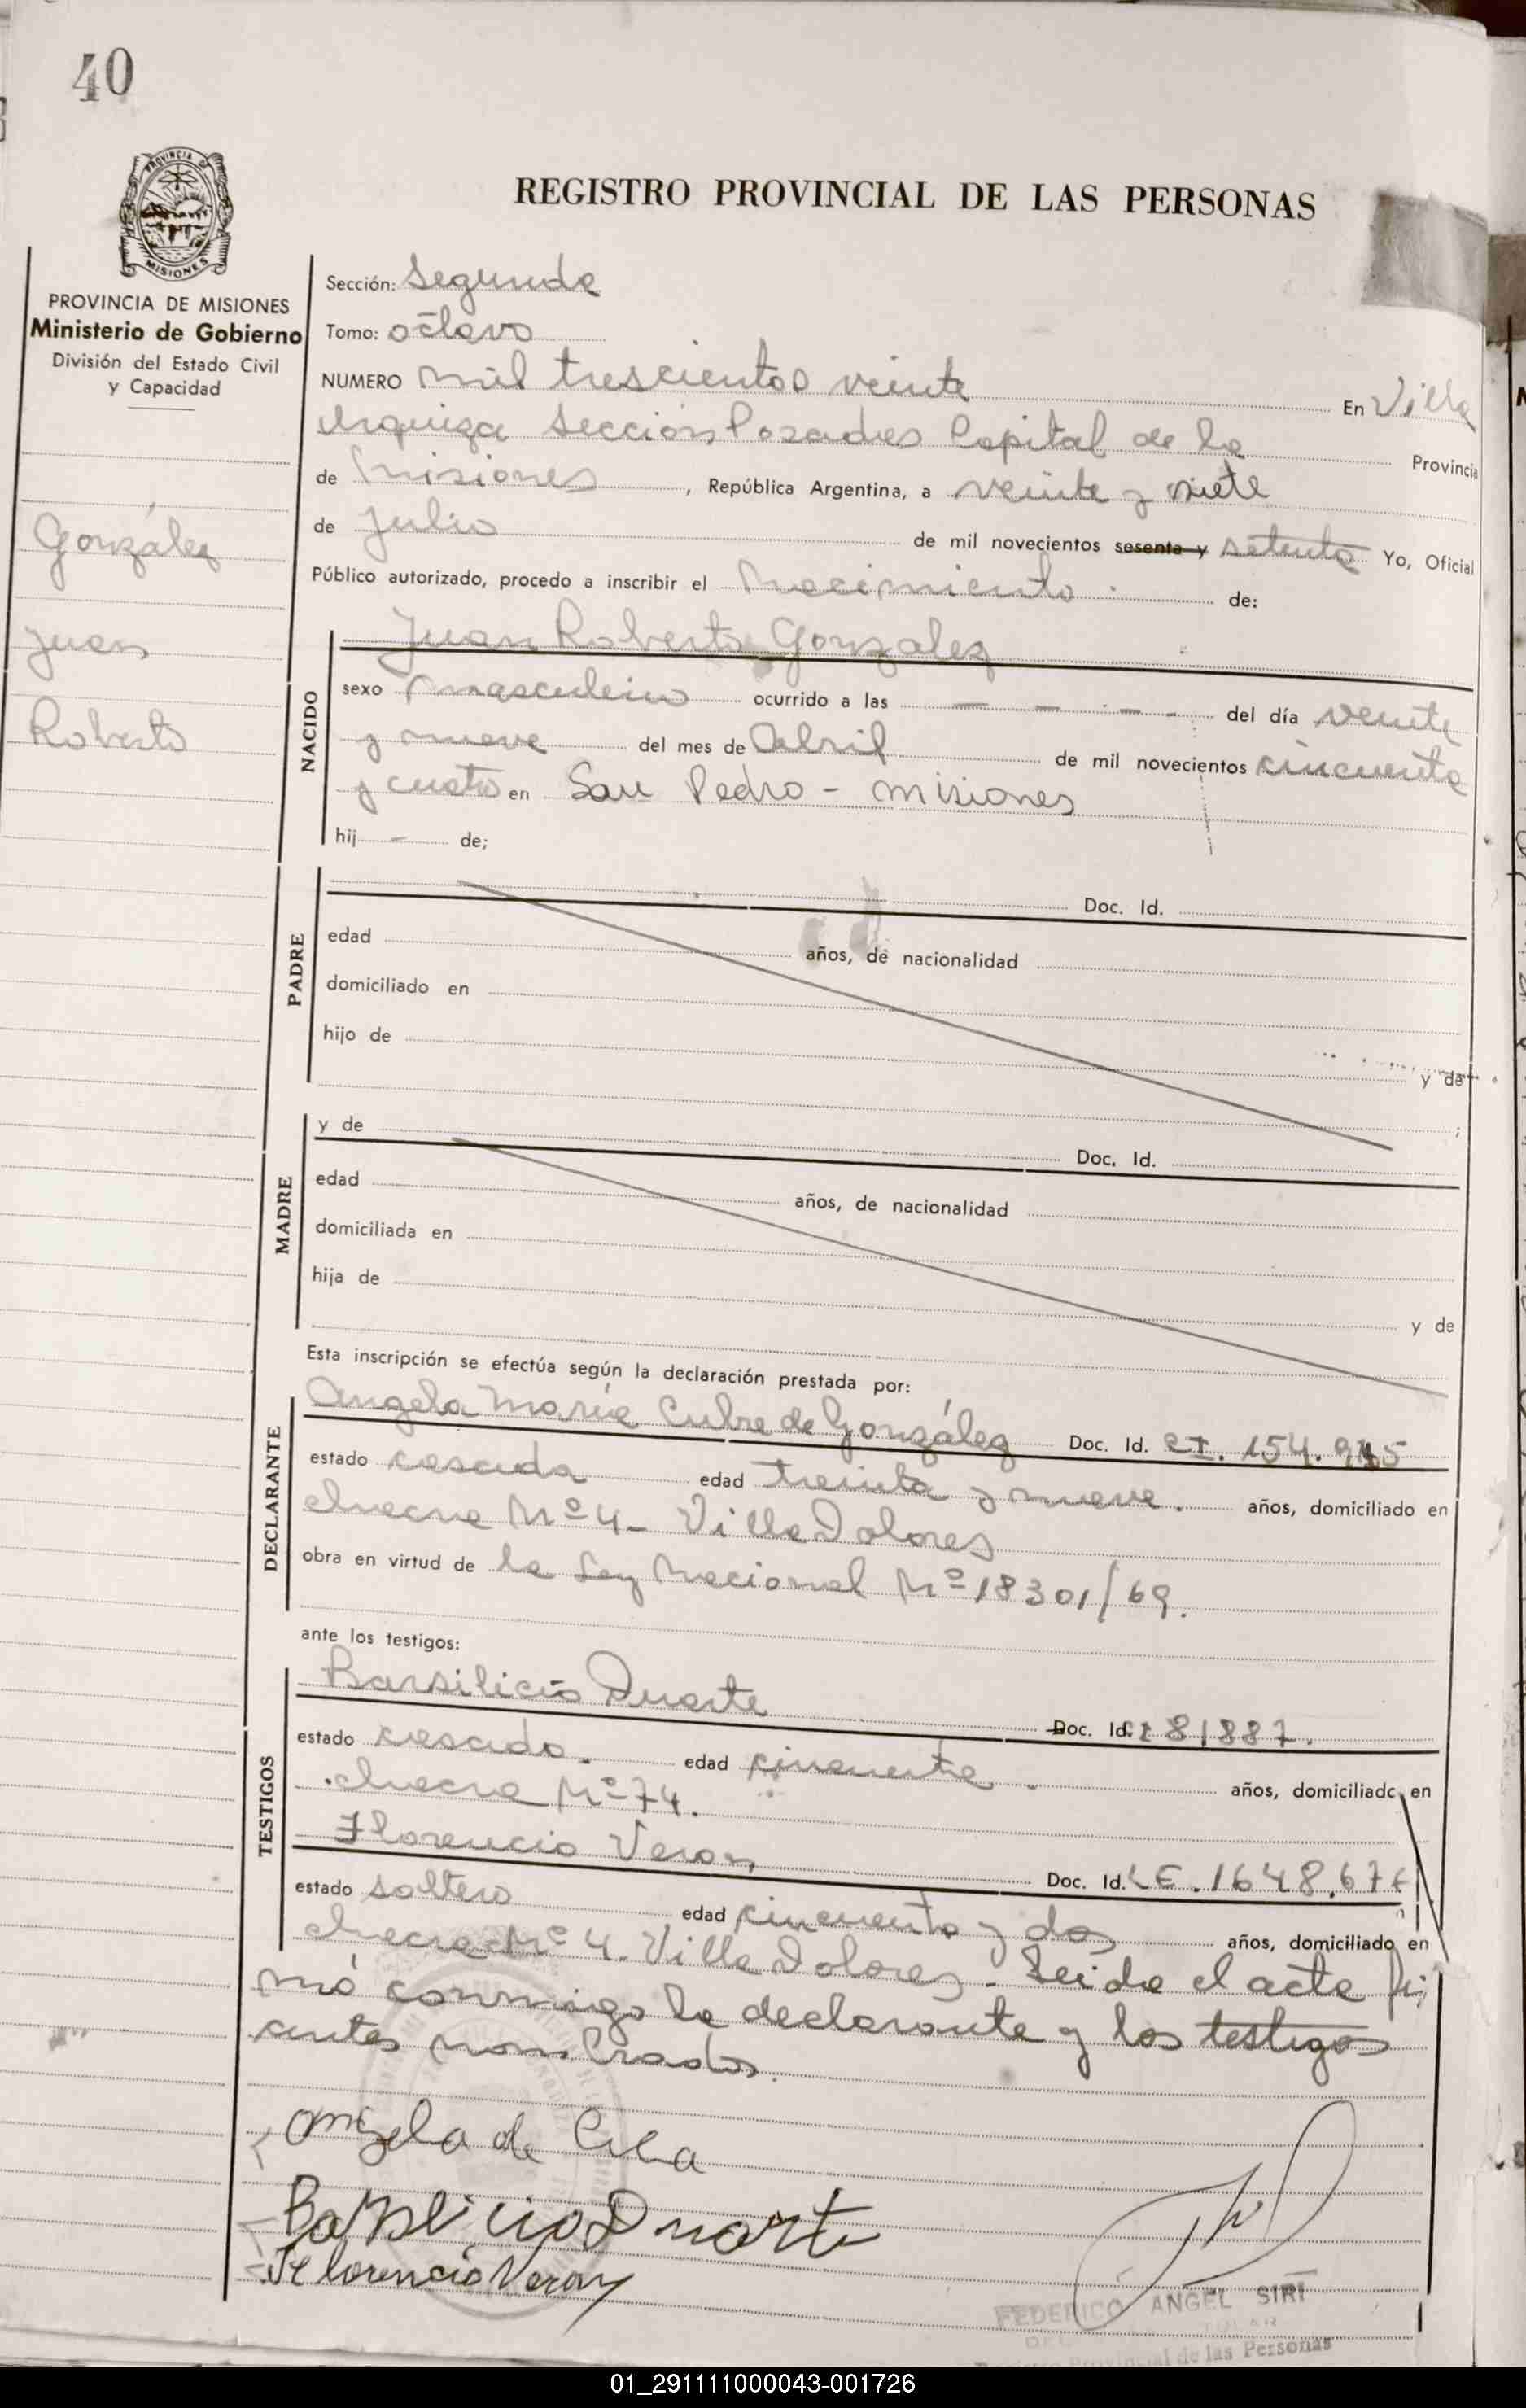 40
PROVINCIA DE
MISIONES
REGISTRO PROVINCIAL DE LAS PERSONAS
PROVINCIA DE MISIONES
Ministerio de Gobierno
División del Estado Civil
y Capacidad
González
Juan
Roberto
Sección: Segunda
Tomo: octavo
NUMERO mil trescientos veinte En Villa
Urquiza Sección Posadas Capital de la Provincia
de Misiones, República Argentina, a veinte y siete
de julio de mil novecientos sesenta y setenta Yo, Oficial
Público autorizado, procedo a inscribir el nacimiento de:
NACIDO
Juan Roberto Gonzalez
sexo masculino ocurrido a las — — - — - del día veinte
y nueve del mes de Abril de mil novecientos cincuenta
y cuatro en San Pedro - Misiones
hij — de;
PADRE
Doc. Id.
edad años, de nacionalidad
domiciliado en
hijo de
y de
;
MADRE
y de Doc. Id.
edad años, de nacionalidad
domiciliada en
hija de
y de
Esta inscripción se efectúa según la declaración prestada por:
DECLARANTE
Angela María Cubre de González Doc. Id. CI. 154.
estado casada edad treinta y nueve. años, domiciliado en
chacra Nº 4 - Villa Dolores
obra en virtud de la Ley Nacional Nº 18301/69.
ante los testigos:
TESTIGOS
Barsilicio Duarte Doc. Id. CI 81887.
estado casado. edad cincuenta años, domiciliado en
chacra Nº 74.
Florencio Veron Doc. Id. LE. 1648.676
estado soltero edad cincuenta y dos años, domiciliado en
chacra Nº 4. Villa Dolores - Leida el acta fir
mó conmigo la declarante y los testigos
antes nombrados.
Angela de
Barsilicio Duarte
Florencio Veron
FEDERICO ANGEL SIRI
Registro Provincial de las Personas
01_291111000043-001726